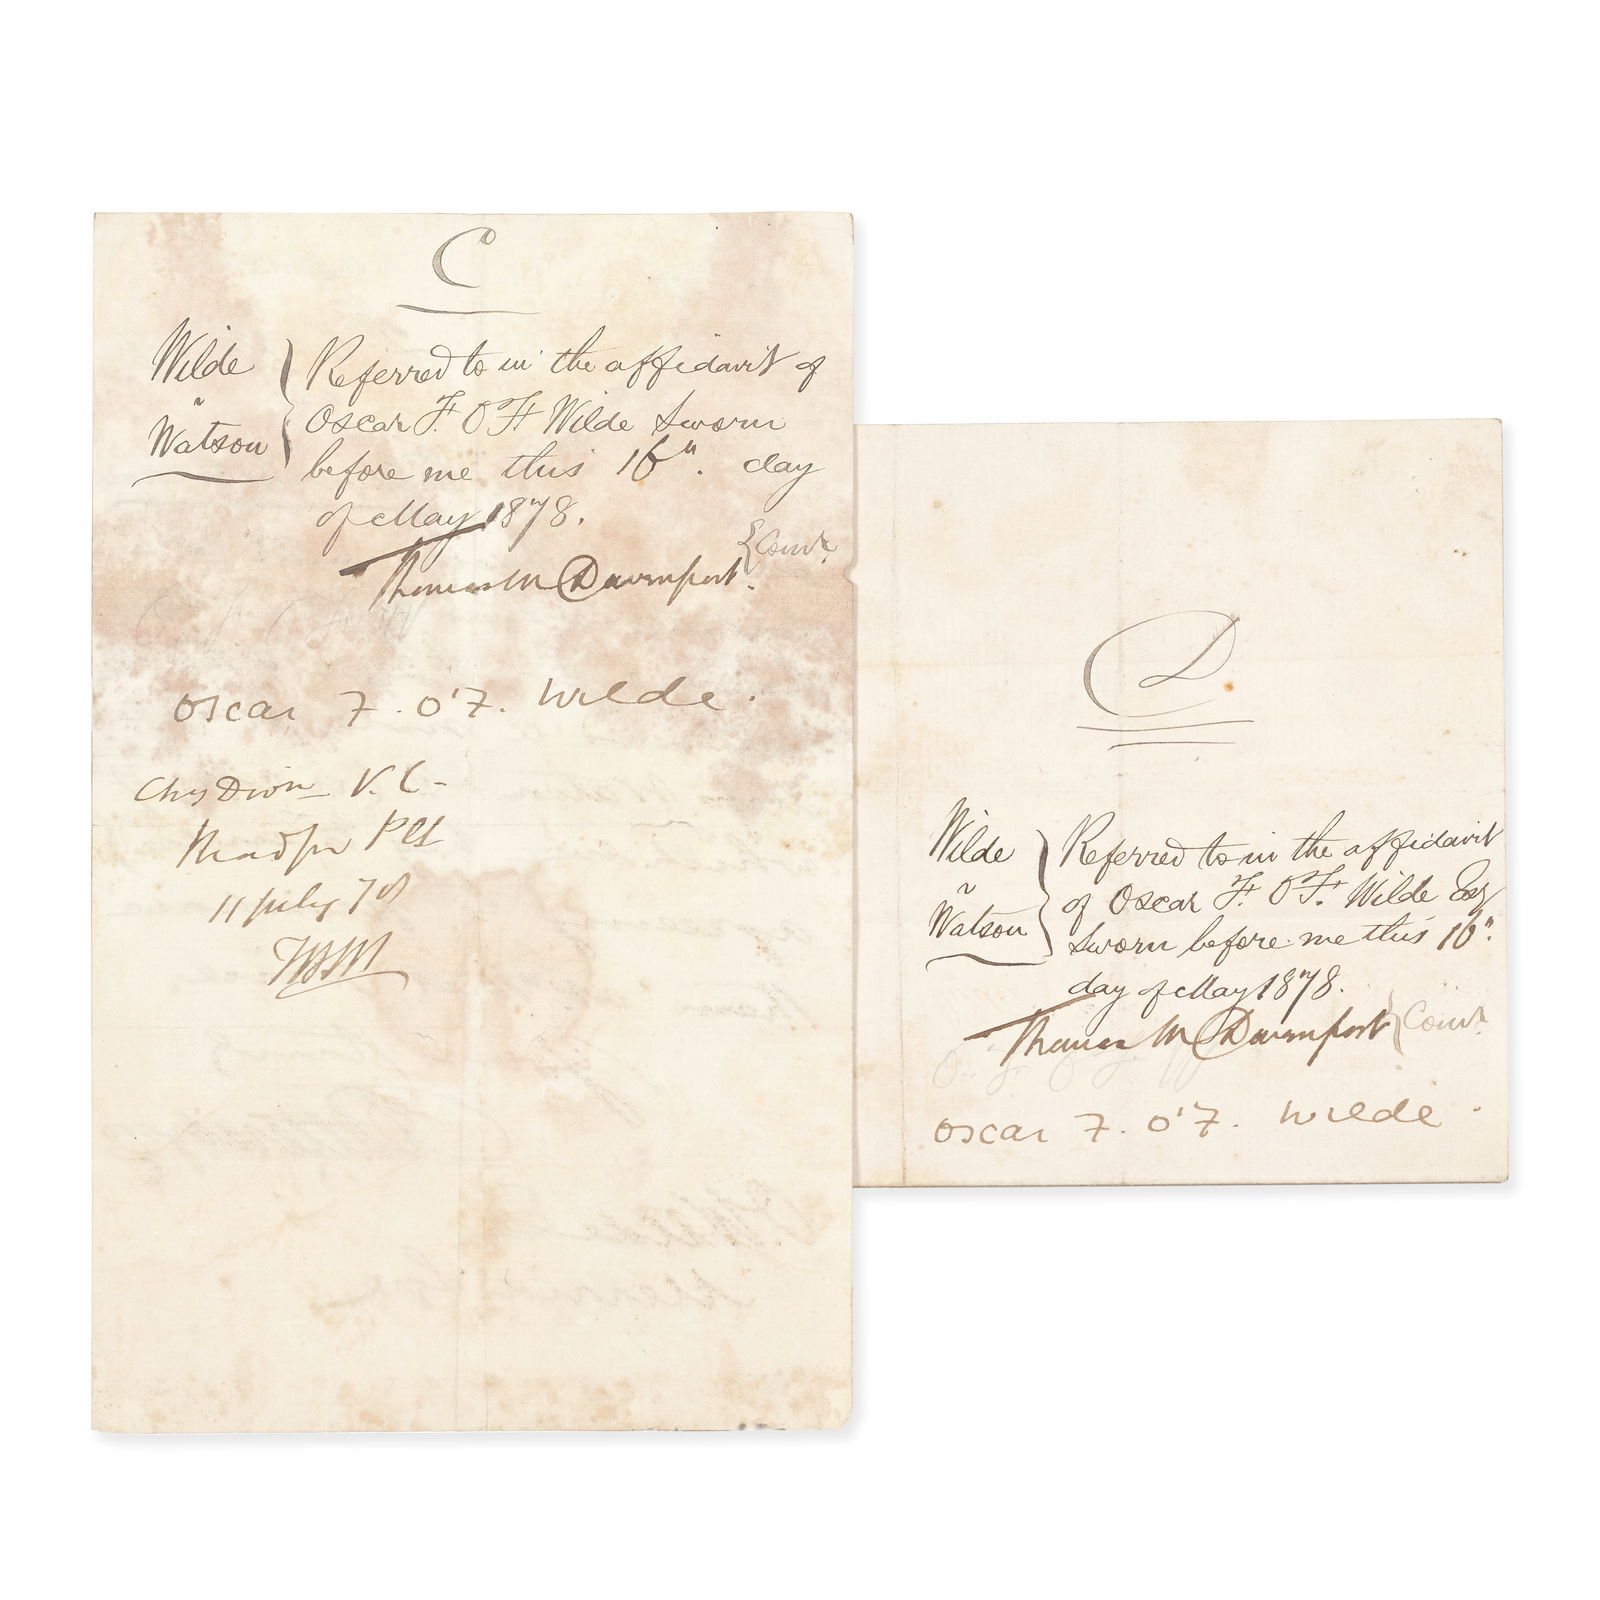 C
Wilde
v
Watson
Referred to in the affidavit of
Oscar F. O'F Wilde Sworn
before me this 16th. day
of May 1878.
Thomas M Davenport. {Comr.
Oscar F. O'F. Wilde.
V.C.
Read for Plt
11 July 78
D
Wilde
v
Watson
Referred to in the affidavit
of Oscar F. O'F. Wilde Esq
Sworn before me this 16th.
day of May 1878.
Thomas M Davenport {Comr.
Oscar F. O'F. Wilde.